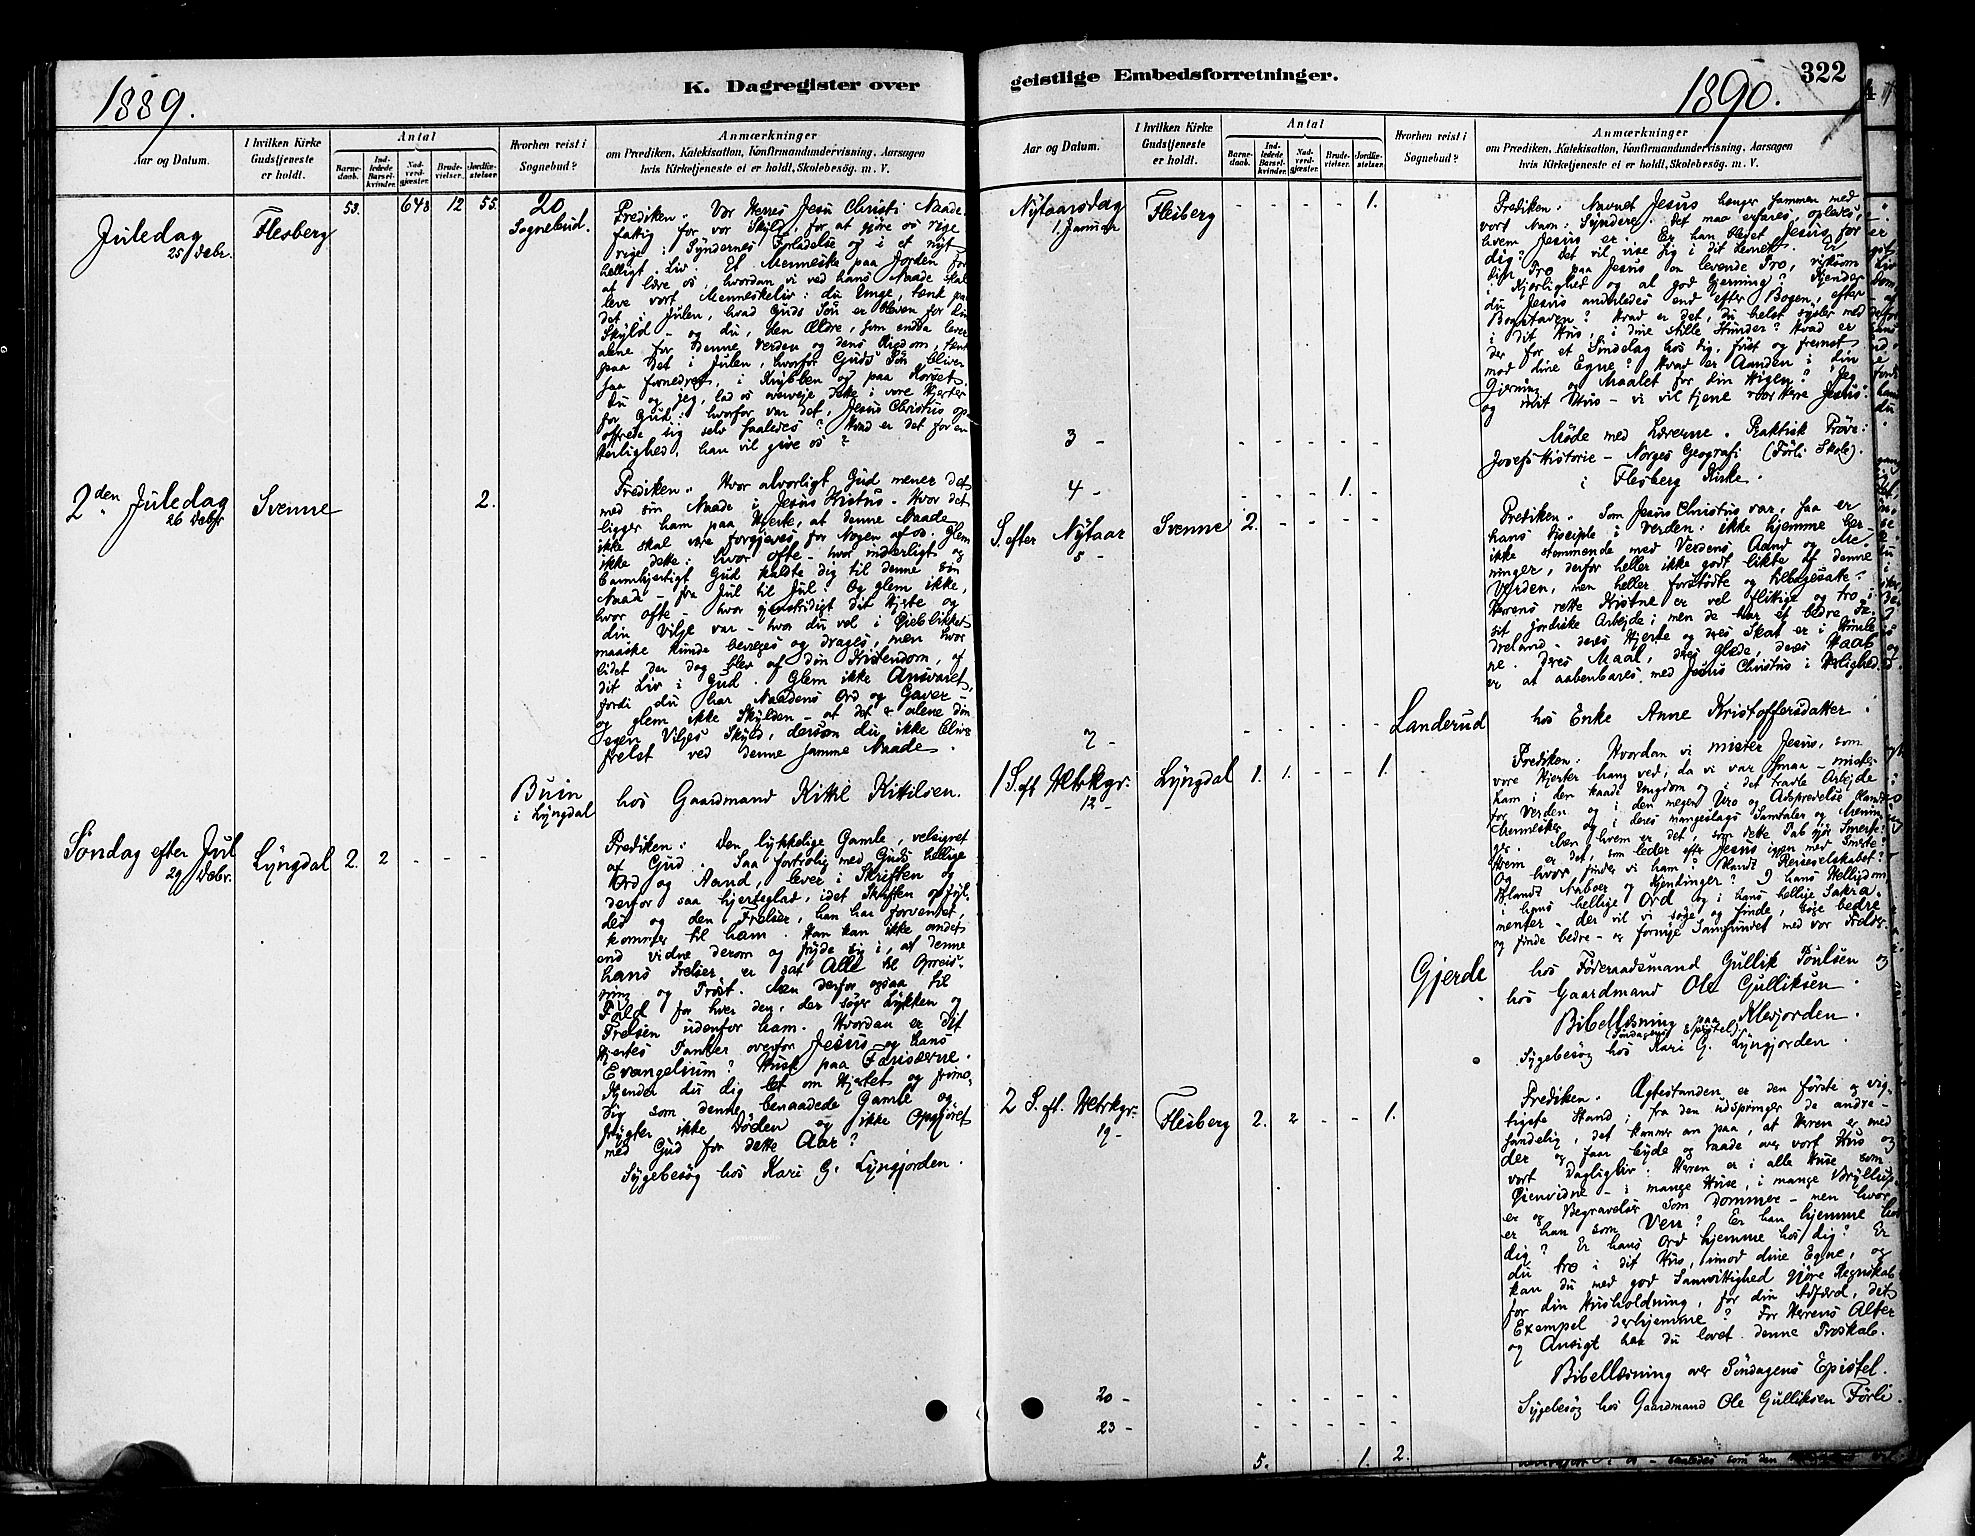 1889.
K. Dagregister over
Aar og Datum.
I hvilken Kirke
Gudstjeneste
er holdt.
Antal
Barne-
daab.
Ind-
ledede
Barsel-
kvinder.
Nad-
verd-
gjæster.
Brude-
vielser.
Jordfæ-
stelser
Hvorhen reist i
Sognebud?
Anmærkninger
om Prædiken, Katekisation, Konfirmandundervisning, Aarsagen
hvis Kirketjeneste ei er holdt, Skolebesøg. m. V.
53. 648 12 55. 20
Sognebud.
Juledag
25/ Decbr.
Flesberg
Prediken. Vor Herres Jesu Christi Naade:
fattig for vor Skyld, for at gjøre os rige
rige: Syndernes Forladelse og i et nyt
helligt Liv. Et Menneske paa Jorden for
at lære os, hvordan vi ved hans Naade skal
leve vort Menneskeliv: du Unge, tænk paa
det i Julen, hvad Guds Søn er bleven for din
Skyld - og du, den Ældre, som endda lever
alene for denne Verden og dens Rigdom, tænk
paa det i Julen, hvorfor Guds Søn bliver
saa fornedret, i Krybben og paa Korset.
Du og jeg, lad os overveje dette i vore Hjerter
for Gud: hvorfor var det, Jesus Christus op-
offrede sig selv saaledes? Hvad er det for en
Herlighed, han vil give os?
2den Juledag
26 Decbr
Svenne
2.
Prediken. Hvor alvorligt Gud mener det
med sin Naade i Jesus Kristus - Hvor det
ligger ham paa Hjerte, at denne Naade
ikke skal være forgjeves for Nogen af os. Glem
ikke dette: hvor ofte - hvor inderligt og
barmhjertigt Gud kaldte dig til denne sin
Naade - fra Jul til Jul! Og glem ikke,
hvor ofte - hvor gjenstridigt dit Hjerte og
din Vilje var - hvor du vel i Øieblikket
maaske kunde bevæges og drages, men hvor
lidet der dog blev af din Kristendom, af
dit Liv i Gud. Glem ikke Ansvaret,
fordi du har Naadens Ord og Gaver -
og glem ikke Skylden - at det er alene din
egen Viljes Skyld, dersom du ikke blive
frelst ved denne samme Naade.
Buin
i Lyngdal
hos Gaardmand Kittil Kittilsen.
Søndag efter Jul
29/ Decbr.
Lyngdal
2. 2 - - -
Prediken: Den lykkelige Gamle, velsignet
af Gud. Saa fortrolig med Guds hellige
Ord og Aand, lever i Skriften og
derfor saa hjerteglad, idet Skriften opfyl-
des og den Frelser, han har forventet,
kommer til ham. Han kan ikke andet
end vidne derom og fryde sig i, at denne
hans Frelser er sat Alle til Opreis-
ning og Trøst. Men derfor ogsaa til
Fald for hver den, der søger Lykken og
Frelsen udenfor ham. Hvordan er dit
Hjertes Tanker overfor Jesus og hans
Evangelium? Husk paa Fariseerne.
Kjender du dig let om Hjertet og frimo-
dig som denne benaadede Gamle og
frygter ikke Døden og ikke Opgjøret
med Gud for dette Aar?
Sygebesøg hos Kari G. Lyngjorden.
geistlige Embedsforretninger.
1890.
322
Aar og Datum.
I hvilken Kirke
Gudstjeneste
er holdt.
Antal
Barne-
daab.
Ind-
ledede
Barsel-
kvinder.
Nad-
verd-
gjæster.
Brude-
vielser.
Jordfæ-
stelser.
Hvorhen reist i
Sognebud?
Anmærkninger
om Prædiken, Katekisation, Konfirmandundervisning, Aarsagen
hvis Kirketjeneste ei er holdt, Skolebesøg. m. V.
Nytaarsdag
1. Januar
Flesberg
- - - - 1.
Prediken. Navnet Jesus hænger sammen med
vort Navn: Syndere. Det maa erfares, opleves,
hvem Jesus er. Er han blevet Jesus for
dig? Det vil vise sig i dit Levnet. Er
din Tro paa Jesus en levende Tro, virksom
i Kjærlighed og al god Gjerning? Kjender
du Jesus anderledes end efter Bogen, efter
Bogstaven? Hvad er det, du helst sysler med
i dit Hus, i dine stille Stunder? Hvad er
der for et Sindelag hos dig, først og fremst
mod dine Egne? Hvad er Aanden i din
Gjerning og Maalet for din Higen? "Jeg
og mit Hus - vi vil tjene vor Herre Jesus."
3 -
- - - - -
Møde med Lærerne. Praktisk Prøve:
Josefs Historie - Norges Geografi (Förli Skole).
4 -
- - - 1. -
i Flesberg Kirke.
S. efter Nytaar
5 -
Svenne
2. - - - -
Prediken. Som Jesus Christus var, saa er
hans Disciple i Verden: ikke hjemme her -
ikke stemmende med Verdens Aand og Me-
ninger, derfor heller ikke godt likte af denne
Verden, men heller forstødte og tilbagesatte.
Herrens rette Kristne er vel flittige og tro i
sit jordiske Arbejde; men de har et bedre Fæ-
dreland - deres Hjerte og deres Skat er i Himle-
ne. Deres Maal, deres Glæde, deres Haab
er at aabenbares med Jesus Christus i Herlighed.
7 -
- - - - -
Landerud
hos Enke Anne Kristoffersdatter.
1 S. eft. Hetrkgr.
12 -
Lyngdal
1. 1. - - 1.
Prediken: Hvordan vi mister Jesus, som
vore Hjerter hang ved, da vi var smaa - mister
ham i den kaade Ungdom og i det travle Arbejde
for Verden og i den megen Uro og Adspredelse blandt
Mennesker og i deres mangeslags Samtaler og Menin-
ger. Men hvem er det, som dette Tab gjør Smerte?
Hvem er det, som leder efter Jesus igjen med Smerte?
Og hvor finder vi ham? Blandt Reiseselskabet?
Blandt Naboer og Kjendinger? I hans Helligdom
i hans hellige Ord og i hans hellige Sakra-
menter - der vil vi søge og finde, søge bedre
og finde bedre - og fornye Samfundet med vor Frelser.
Gjerde
hos Føderaadsmand Gullik Poulsen og
hos Gaardmand Ole Gulliksen.
Bibellæsning paa Klevjorden.
(Søndagens Epistel).
Sygebesøg hos Kari G. Lyngjorden.
2 S. eft. Hetrkgr.
19 -
Flesberg
2. 2 - - 1.
Prediken. Ægtestanden er den første og vig-
tigste Stand; fra den udspringer de andre -
sandelig, det kommer an paa, at Herren er med
der og faar byde og raade over vort Hus og
vort Dagligliv. Herren er i alle Huse som
Øienvidne - i mange Huse, i mange Bryllup-
er og Begravelser som Dommer - men hvor
er han som Ven? Er han hjemme hos
dig? Er hans Ord hjemme hos dig? Er
du tro i dit Hus, imod dine Egne, og
kan du med god Samvittighed gjøre Regnskab
for din Husholdning, for din Adfærd, dit
Exempel derhjemme? For Herrens Alter
og Ansigt har du lovet denne Troskab.
Bibellæsning over Søndagens Epistel.
20 -
- - - - -
Sygebesøg hos Gaardmand Ole Gulliksen Förli
23 -
- - - - -
5. 1. 2.